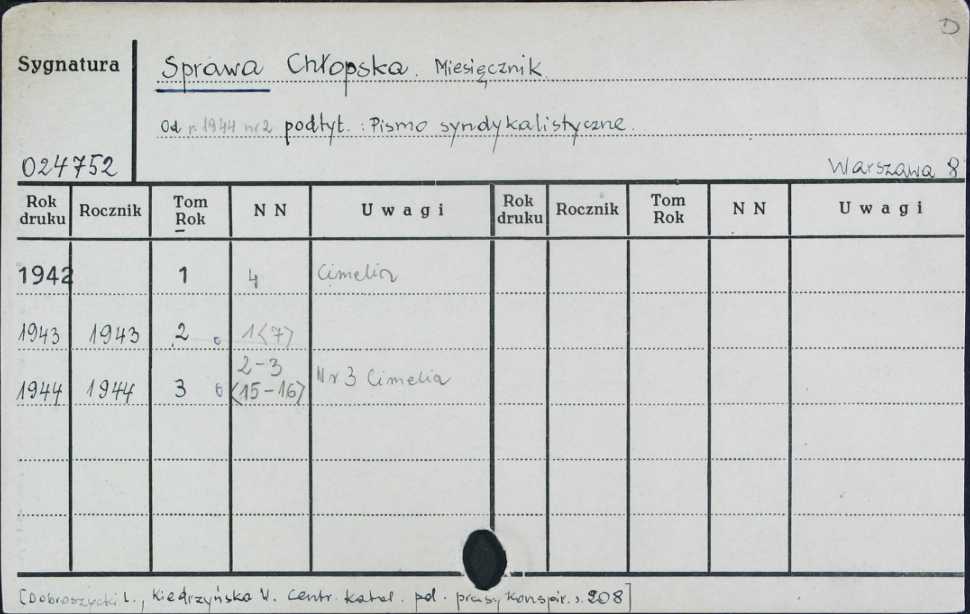 D
Sygnatura
Sprawa Chłopska. Miesięcznik
Od r. 1944 nr 2 podtyt. : Pismo syndykalistyczne.
024752
Warszawa 8°
Rok druku Rocznik Tom Rok N N Uwagi Rok druku Rocznik Tom Rok N N Uwagi
1942 1 4 Cimelia
1943 1943 2 1<7>
1944 1944 3 2-3 <15-16> Nr 3 Cimelia
[Dobroszycki L., Kiedrzyńska W. Centr. katal. pol. prasy konspir. s. 208]